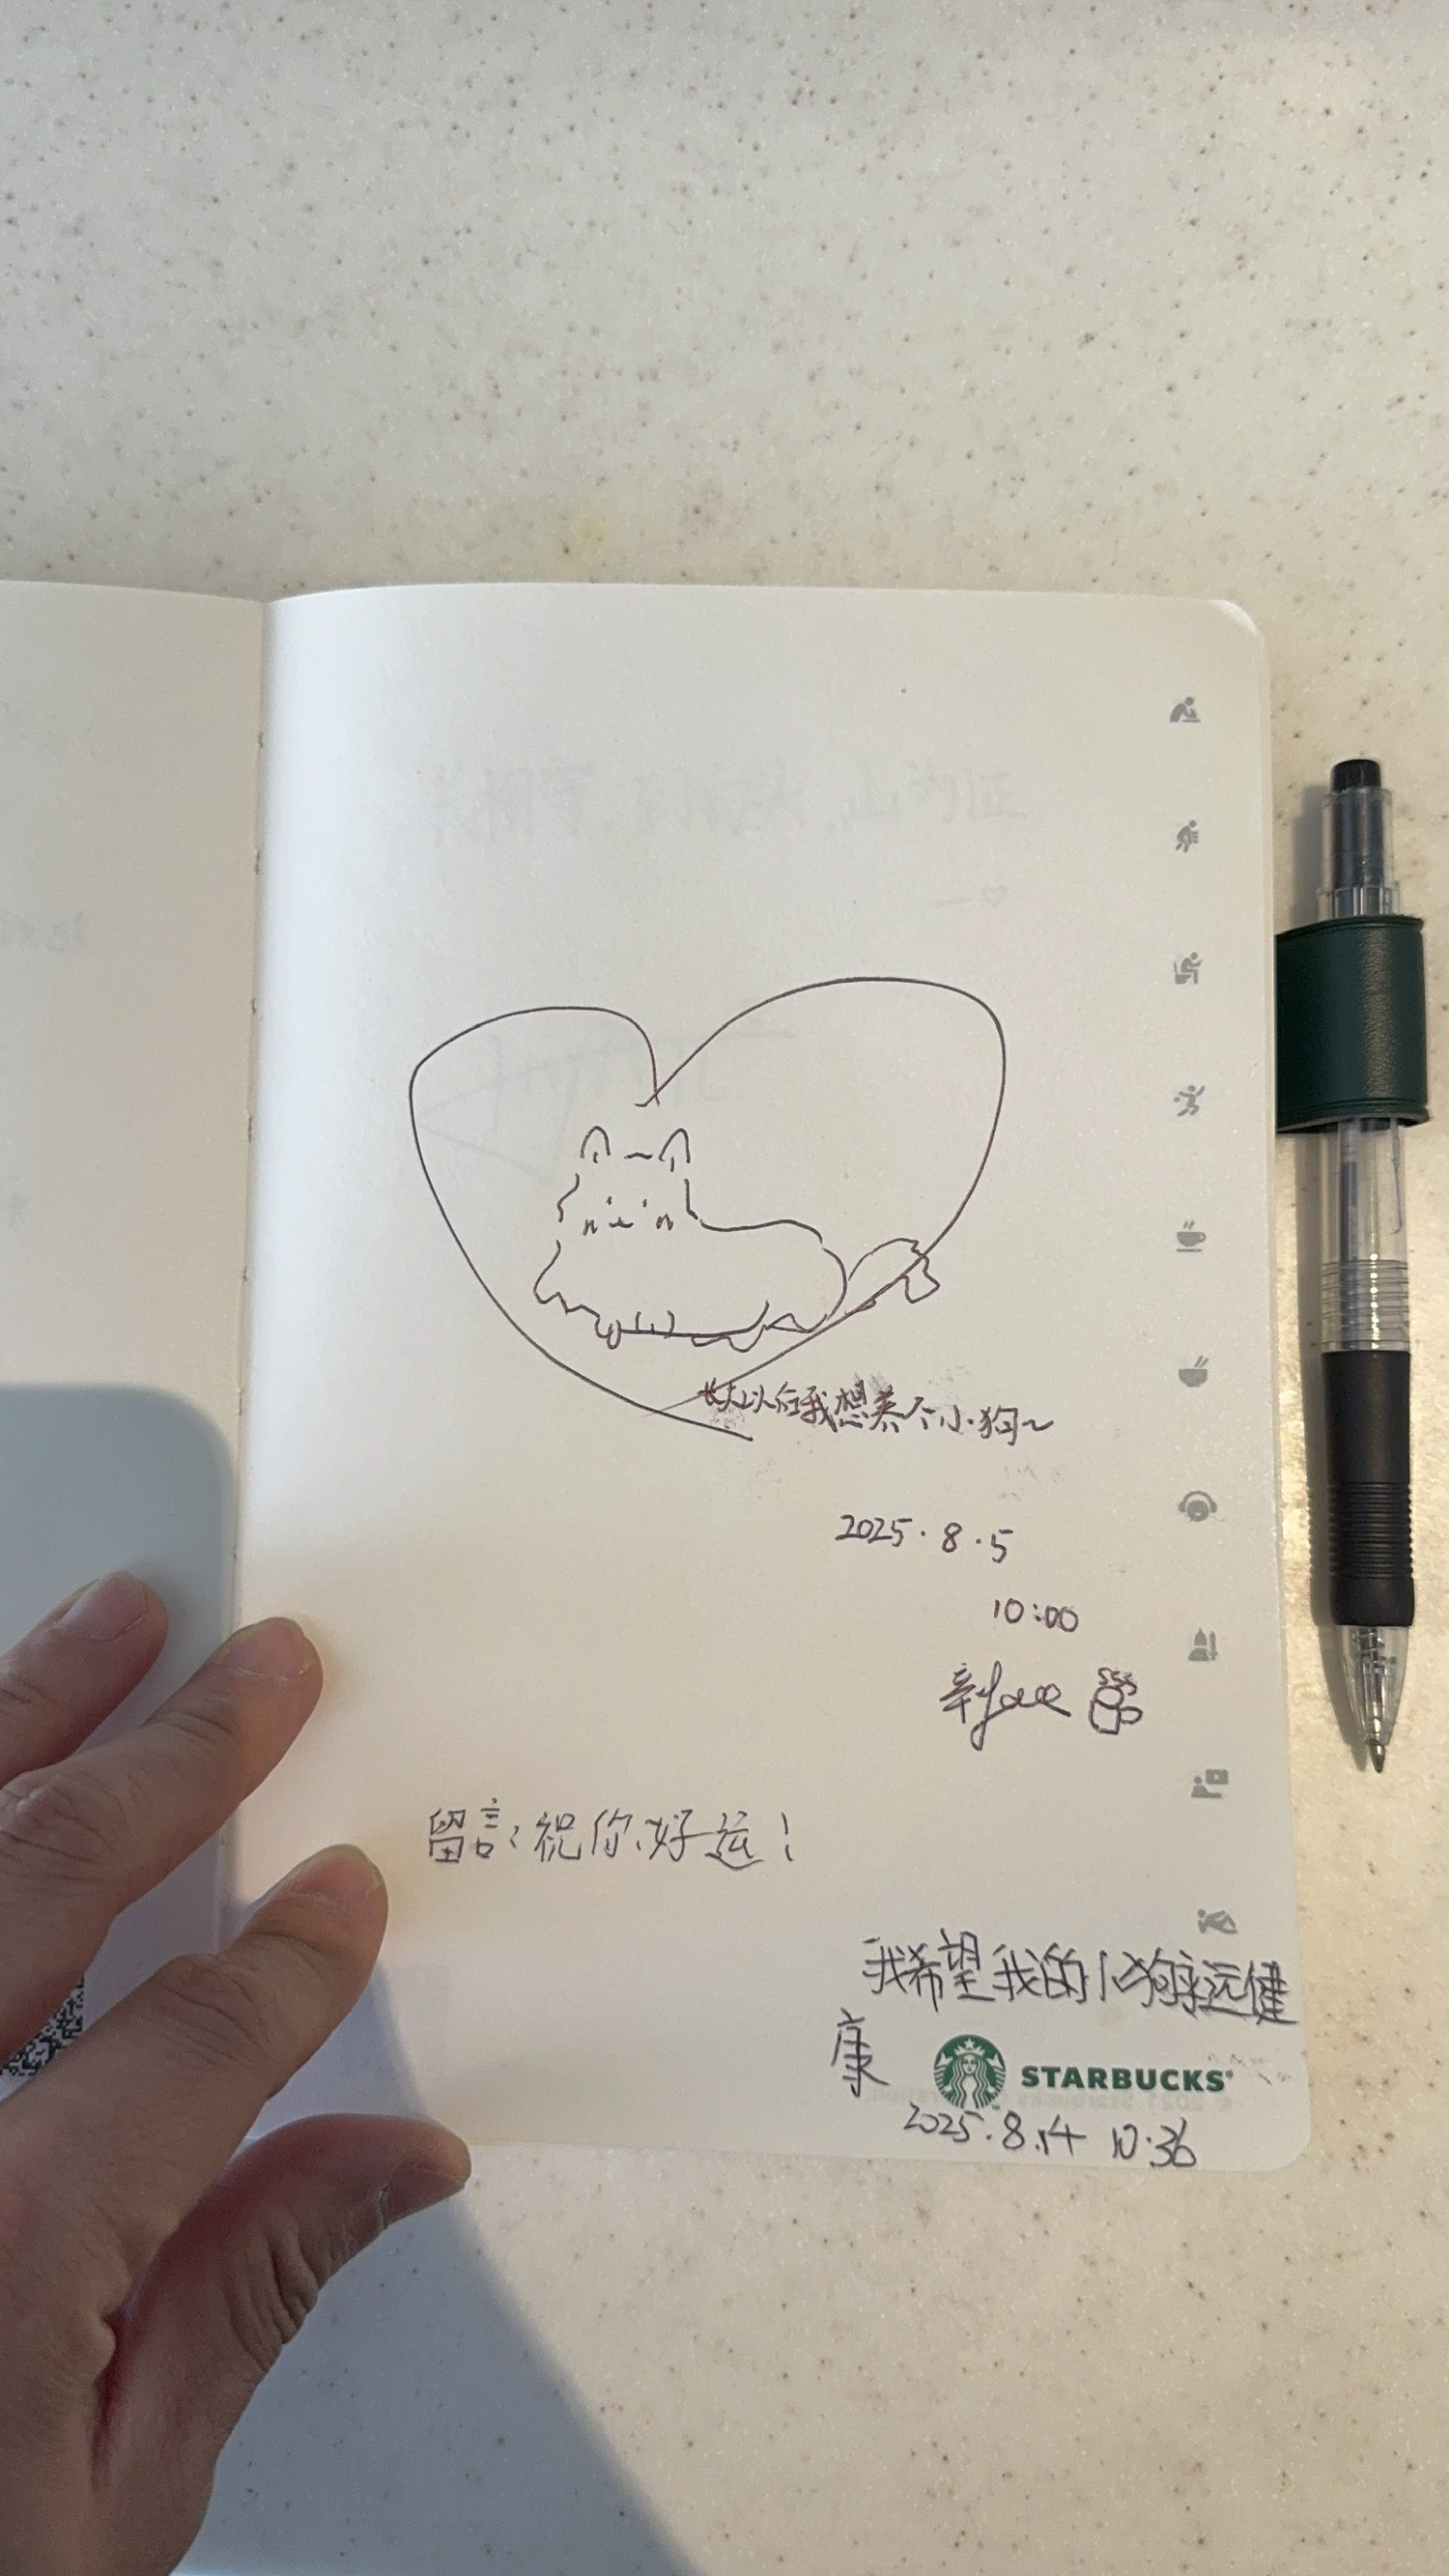 长大以后我想养个小狗~
2025.8.5
10:00
留言:祝你好运!
我希望我的小狗永远健
康
STARBUCKS
2025.8.14 10:36